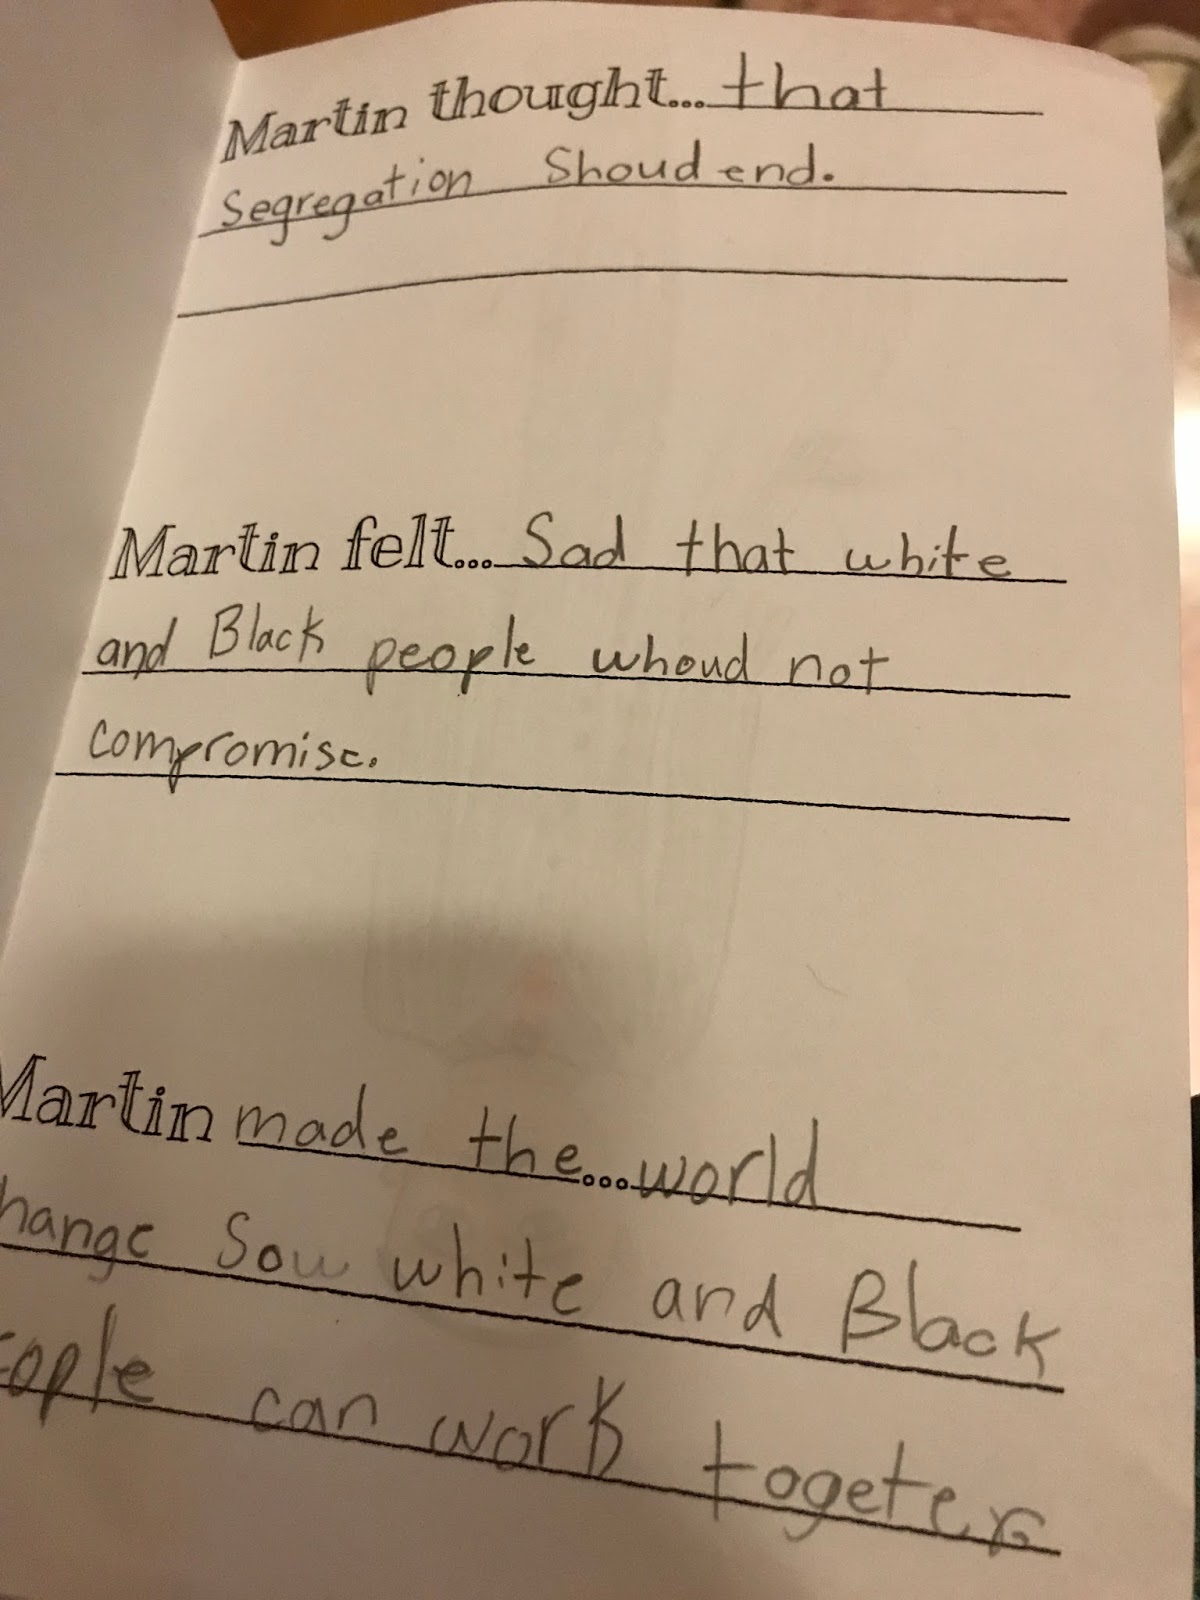 Martin thought... that
Segregation Shoud end.
Martin felt... Sad that white
and Black people whoud not
compromise.
Martin made the...world
hange Sow white and Black
eople can work togeter